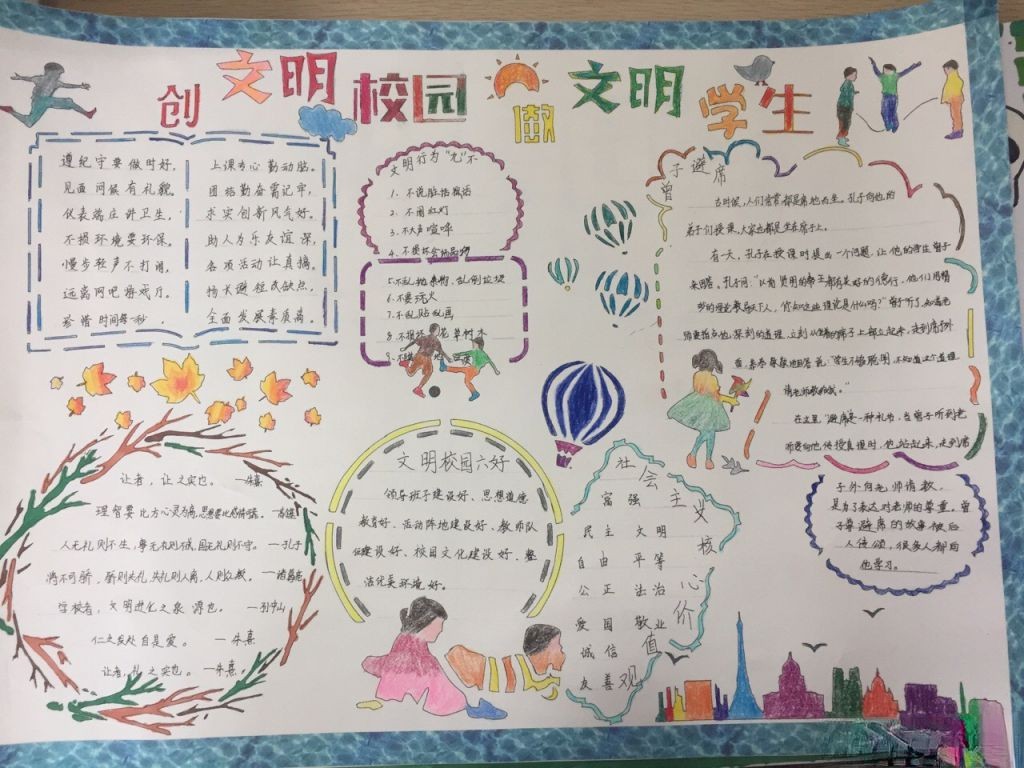 创文明校园 做文明学生
遵纪守要做时好，
见面问候有礼貌。
仪表端庄讲卫生，
不损环境要环保。
慢步轻声不打闹，
远离网吧游戏厅。
珍惜时间每一秒
上课专心勤动脑。
团结勤奋需记牢，
求实创新风气好。
助人为乐友谊深，
各项活动让真搞。
扬长避短改缺点，
全面发展素质高。
文明行为“九”不
1、不说脏话粗话
2、不闯红灯
3、不大声喧哗
4、不损坏公物
5、不乱抛杂物，乱倒垃圾
6、不要玩火
7、不乱贴乱画
8、不损 花草树木
9、不随地
曾子避席
古时候，人们常常都是席地而坐。孔子向他的
弟子们授课，大家也都是坐在席子上。
有一天，孔子在授课时提出一个问题，让他的学生曾子
来回答。孔子问：“以前贤明的帝王都有美好的德行，他们用精
妙的理论教导天下人，你知道这些理论是什么吗？”曾子听了，知道老
师要指点他，深刻的道理，立刻从坐着的席子上都立起来，走到席子外
面，恭恭敬敬地回答说：“学生不够聪明，不知道这个道理
请老师教给我。”
在这里，“避席”是一种礼节，当曾子听到老
师要向他传授真理时，他站起来，走到席
子外向老师请教，
是为了表达对老师的尊重。曾
子尊避席的故事被后
人传颂，很多人都向
他学习。
让者，让之实也。 —朱熹
理智要比心灵为高，思想要比感情可靠。
人无礼则不生，事无礼则不成，国无礼则不宁。 —孔子
将不可骄，骄则失礼，失礼则人离，人则众叛。 —诸葛亮
学校者，文明进化之泉源也。 —孙中山
仁之发处自是爱。 —朱熹
让者，礼之实也。 —朱熹
文明校园六好
领导班子建设好、思想道德
教育好、活动阵地建设好、教师队
伍建设好、校园文化建设好、整
洁优美环境好。
社会主义核心价值观
富强
民主 文明
自由 平等
公正 法治
爱国 敬业
诚信
友善